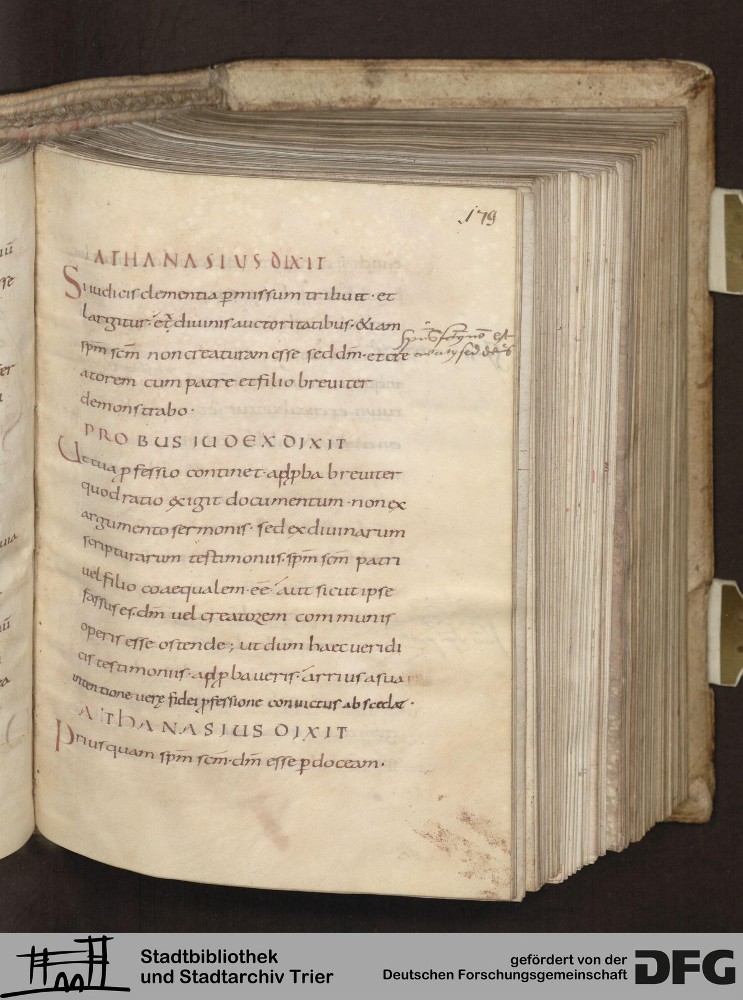 179
ATHANASIUS DIXIT
Si iudicis clementia pmissum tribuit · et
largitur · et diuinis auctoritatibus · &iam
spm scm non creaturam esse sed dm · et cre
atorem cum patre et filio breuiter
demonstrabo ·
PROBUS IUDEX DIXIT
Ut tua pfessio continet · adpba breuiter
quod ratio exigit documentum · non ex
argumento sermonis · sed ex diuinarum
scripturarum testimoniis · spm scm patri
uel filio coaequalem · ee aut sicut ipse
fassus es · dm uel creatorem communis
operis esse ostende ; ut dum haec ueridi
cis testimoniis · adpbaueris · arrius a sua
intentione uerę fidei pfessione conuictus abscedat ·
ATHANASIUS DIXIT
Priusquam spm scm · dm esse pdoceam ·
Stadtbibliothek
und Stadtarchiv Trier
gefördert von der
Deutschen Forschungsgemeinschaft
DFG